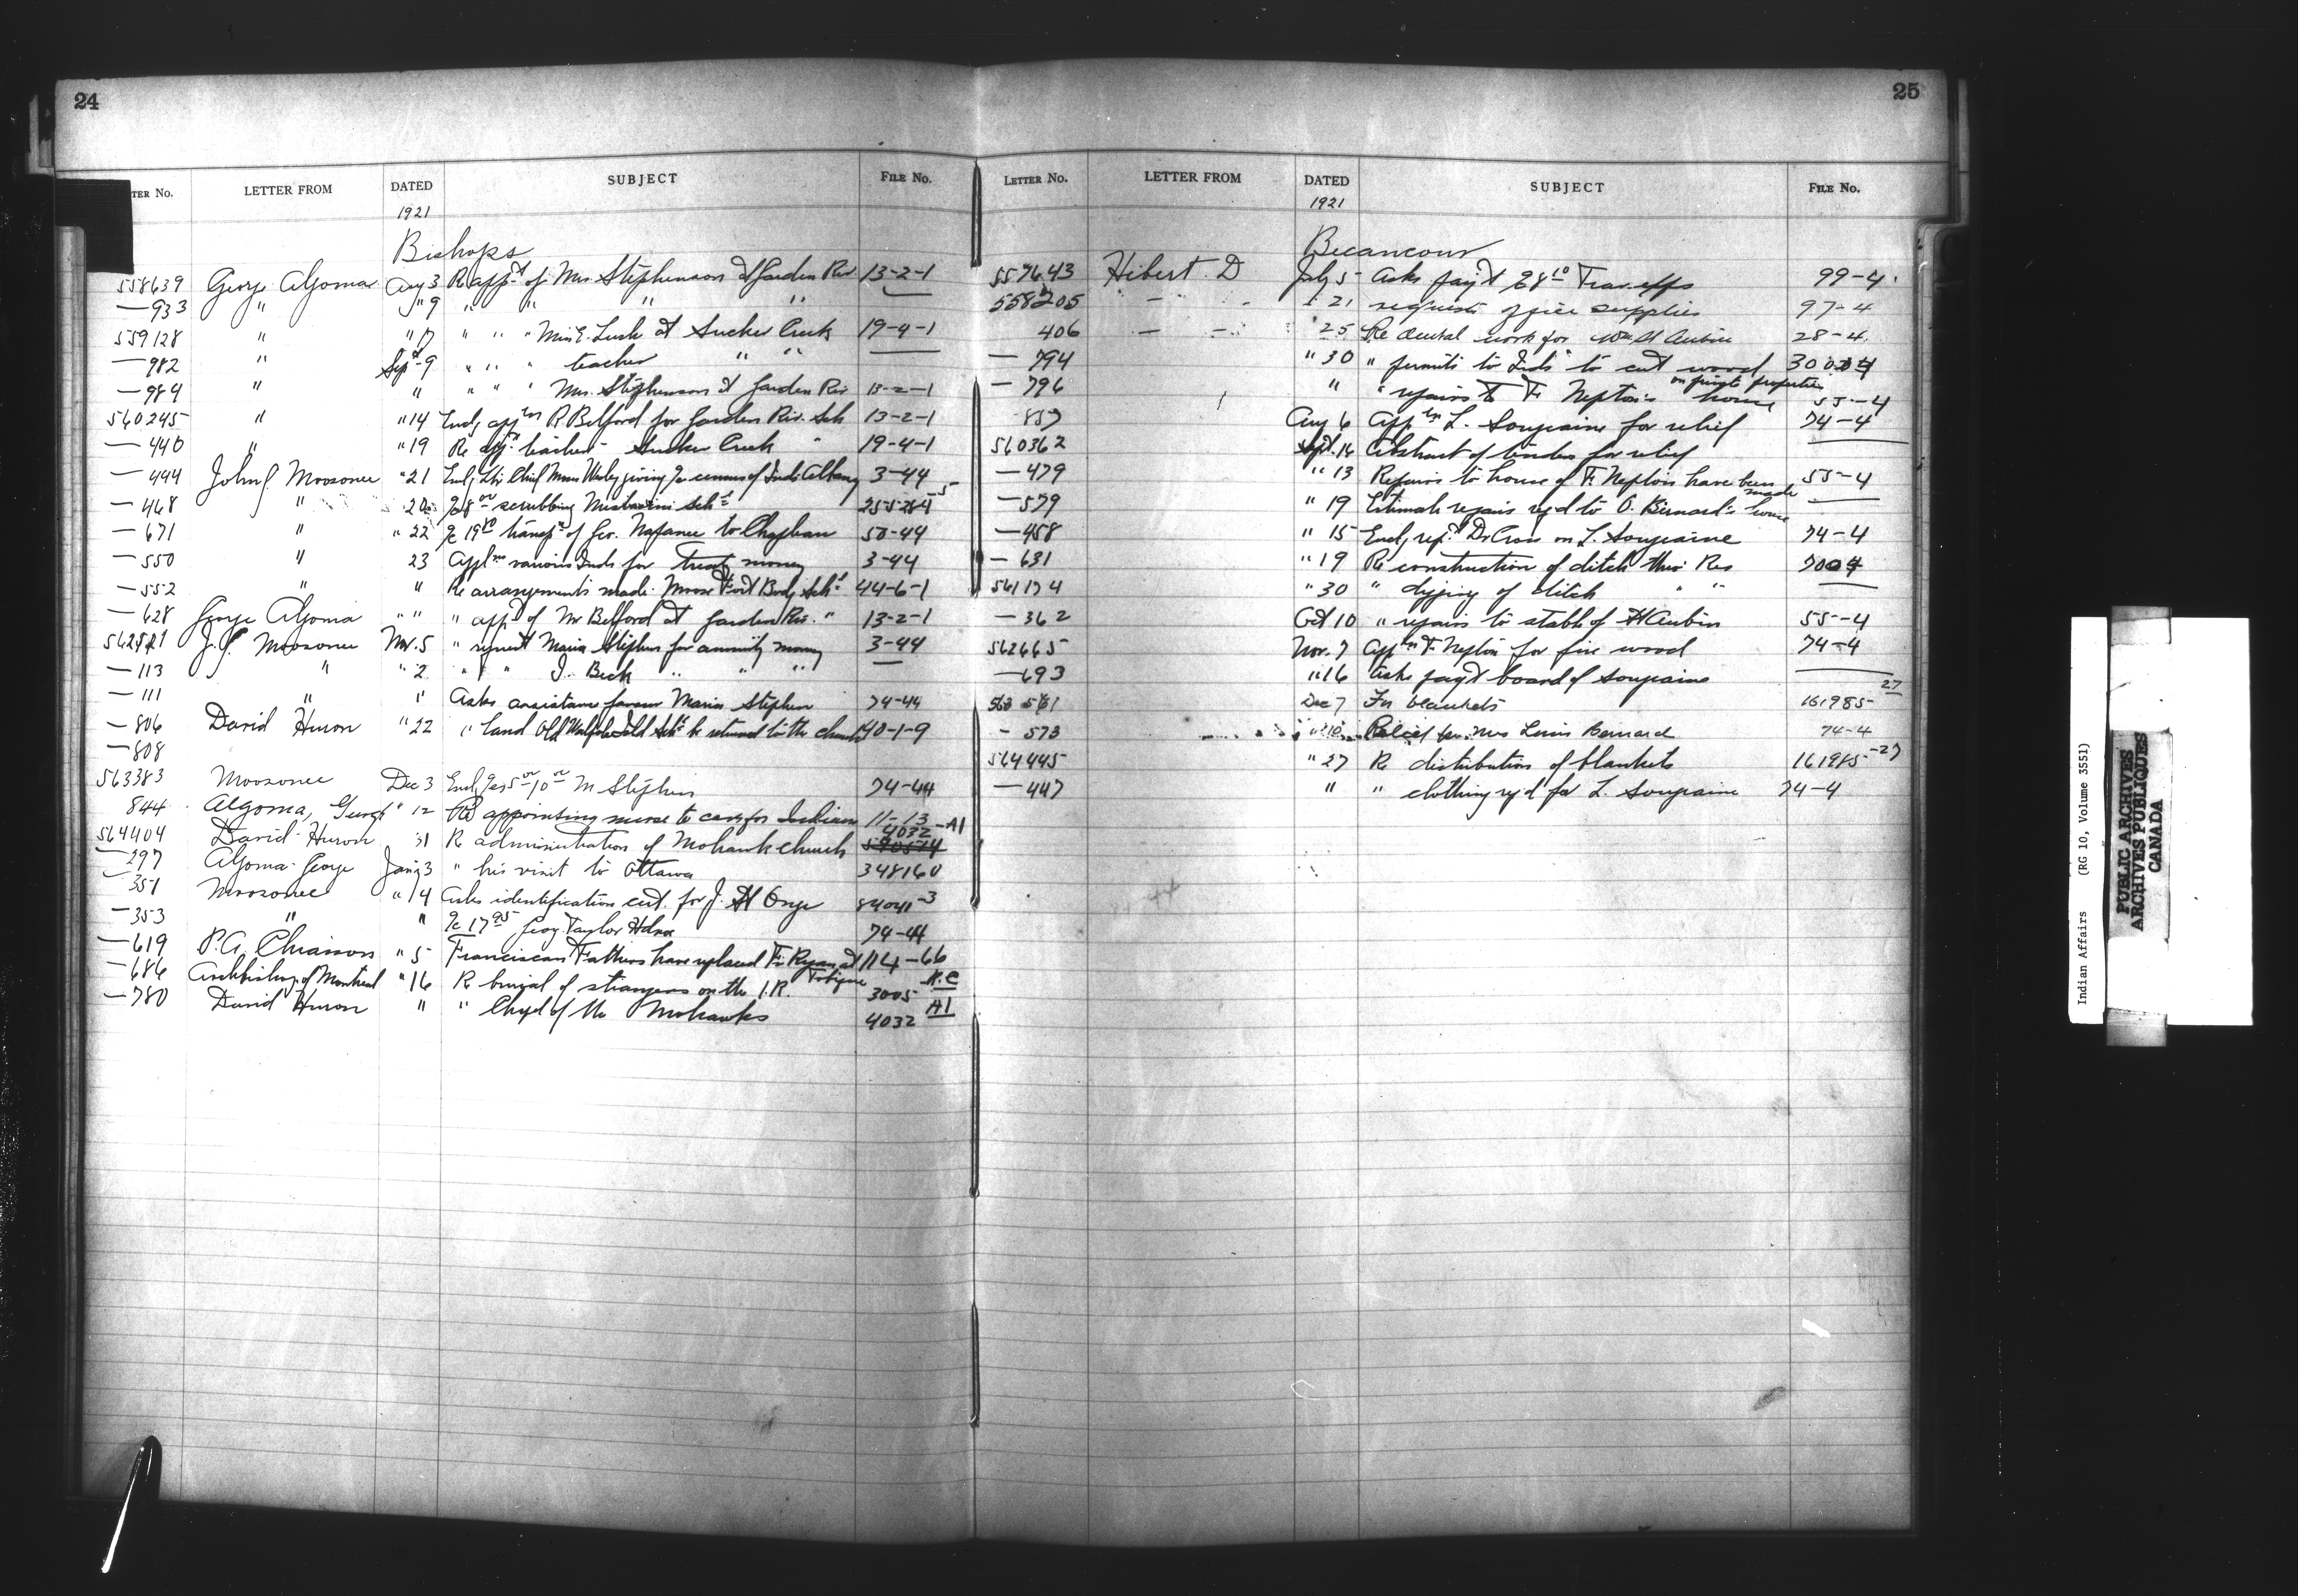 24
LETTER FROM DATED SUBJECT FILE No.
1921
Bishops
558639 George Algoma Aug 3 Re appt of Mrs. Stephenson at Garden Riv. 13-2-1
—933 " " 9 " " " " —
559128 " " 17 " " " Miss E. Lusk at Sucker Creek 19-4-1
—982 " Sept 9 " " " teacher " " —
—984 " " " " " Mrs. Stephenson at Garden Riv 13-2-1
560245 " " 14 Encl. appn R Belford for Garden Riv. Sch 13-2-1
—440 " " 19 Re appt teacher Sucker Creek " 19-4-1
—444 John G. Moosonee " 21 Encl. Ltr Chief Moses Wesley giving census of Inds Albany 3-44
—468 " 20 scrubbing Sch
—671 " " 22 transpn of Geo. Nafanee to Chapleau 50-44
—550 " 23 Appln various Inds for treaty money 3-44
—552 " " Re arrangements made Moose Fort Bodg Schl 44-6-1
—628 George Algoma " " " appt of Mr Belford at Garden Riv. " 13-2-1
J.G. Moosonee Nov. 5 " request Maria Stephen for annuity money 3-44
—113 " " 2 " " J. Beck " " —
—111 " " Asks assistance favour Maria Stephen 74-44
—806 David Huron " 22 " land Old Walpole Isld Schl be returned to the church 40-1-9
—808
563383 Moosonee Dec 3 Encl. M Stephen 74-44
844 Algoma, George " 12 Re appointing nurse to care for Indians 11-13
564404 David Huron 31 Re administration of Mohawk church 4032-A1
—297 Algoma George Jany 3 " his visit to Ottawa 348160
—351 Moosonee " 14 Asks identification cert. for J. St Onge 84041-3
—353 " " 17.95 Geo Taylor 74-44
—619 P.A. Chiasson " 5 Franciscan Fathers have replaced Fr. Ryan at Tobique 114-66
—686 Archbishop of Montreal " 16 Re burial of strangers on the I.R. 3005 H.C
—780 David Huron " " Chapel of the Mohawks 4032 A1
25
LETTER No. LETTER FROM DATED SUBJECT FILE No.
1921
Becancour
557643 Hibert. D July 5 Asks payt Trav. exps 99-4
558205 — " 21 requests office supplies 97-4
406 — " 25 Re dental work for Wm St Aubin 28-4
—794 " 30 " permits to Inds to cut wood on private properties
—796 " " repairs to F. Neptons house 55-4
857 Aug 6 Appln L. Soupraine for relief 74-4
560362 Sept. 14 Abstract of tenders for relief —
—479 " 13 Repairs to house of F. Nepton have been made 55-4
—579 " 19 Estimate repairs reqd to O. Bernard's house —
—458 " 15 Encl. rept Dr Cross on L. Soupraine 74-4
—631 " 19 Re construction of ditch thro Res 7004
561174 " 30 " digging of ditch " " —
—362 Oct 10 " repairs to stable of St Aubin 55-4
562665 Nov. 7 Appln F. Nepton for fire wood 74-4
—693 " 16 Asks payt board of Soupraine —
563 561 Dec 7 For blankets 161985-27
- 573 " 10 Relief for Mrs Louis Bernard 74-4
564445 " 27 Re distribution of blankets 161985-27
—447 " " clothing reqd for L. Soupraine 74-4
Indian Affairs (RG 10, Volume 3551)
PUBLIC ARCHIVES
ARCHIVES PUBLIQUES
CANADA